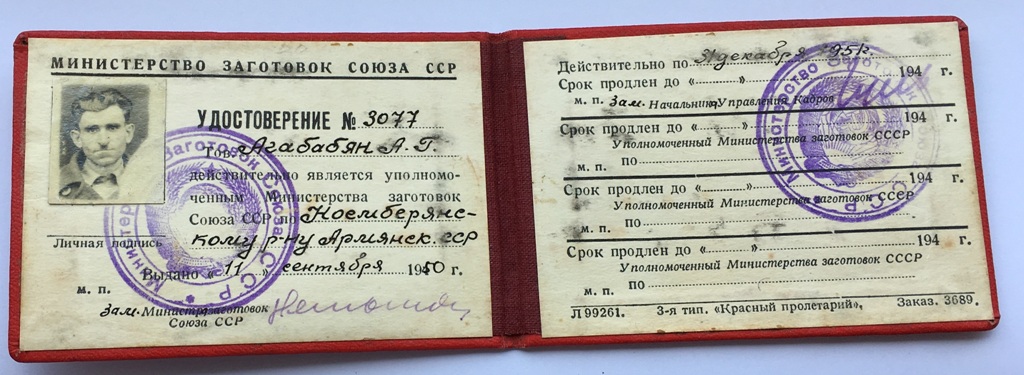 МИНИСТЕРСТВО ЗАГОТОВОК СОЮЗА ССР
УДОСТОВЕРЕНИЕ № 3077
Тов. Агабабян А. Г.
действительно является уполномо-
ченным Министерства заготовок
Союза ССР по Ноемберянс-
кому р-ну Армянск. сср
Личная подпись
Выдано «11» сентября 1950 г.
м. п.
Зам. Министра заготовок
Союза ССР
Министерство Заготовок Союза ССР
Действительно по 31 декабря 195 г.
Срок продлен до «......» 194 г.
м. п. Зам. Начальника Управления Кадров
Срок продлен до «......» 194 г.
Уполномоченный Министерства заготовок СССР
м. п. по
Срок продлен до «......» 194 г.
Уполномоченный Министерства заготовок СССР
м. п. по
Срок продлен до «......» 194 г.
Уполномоченный Министерства заготовок СССР
м. п. по
Л 99261. 3-я тип. «Красный пролетарий», Заказ. 3689.